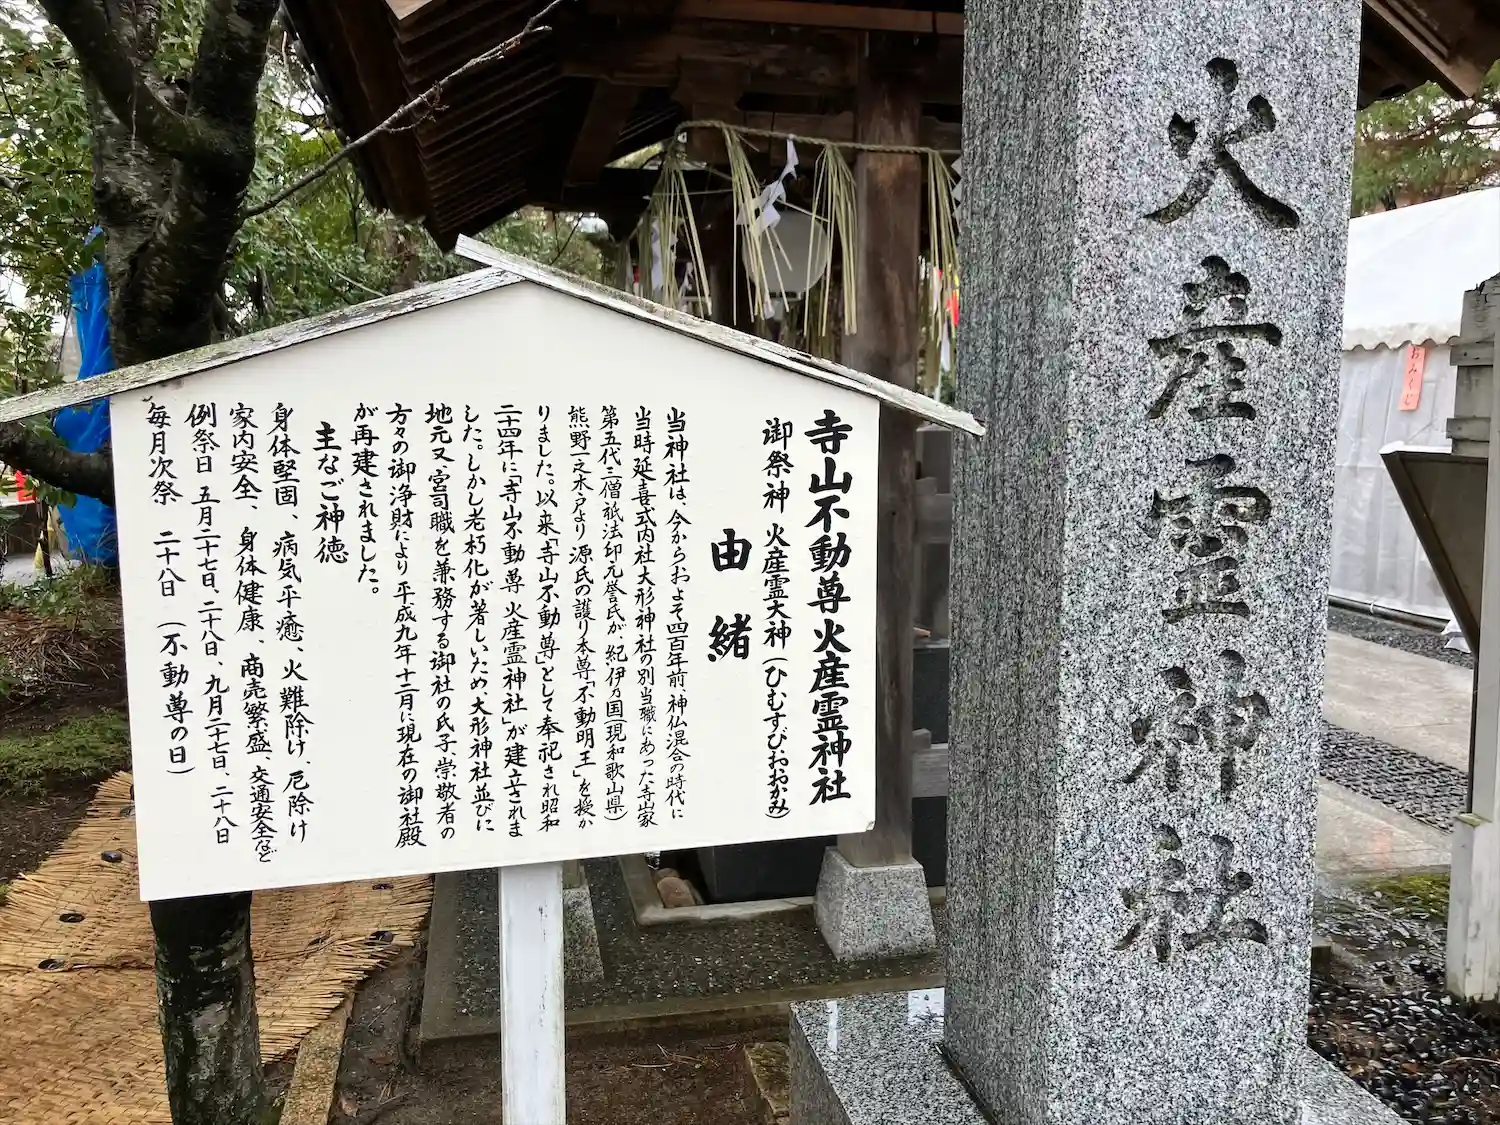 寺山不動尊火産霊神社
御祭神 火産霊大神(ひむすびおおかみ)
由緒
当神社は、今からおよそ四百年前、神仏混合の時代に
当時延喜式内社大形神社の別当職にあった寺山家
第五代三僧祇法印元誉氏が、紀伊乃国(現和歌山県)
熊野一之木戸より源氏の護り本尊「不動明王」を授か
りました。以来「寺山不動尊」として奉祀され昭和
二十四年に「寺山不動尊 火産霊神社」が建立されま
した。しかし老朽化が著しいため大形神社並びに
地元又、宮司職を兼務する御社の氏子、崇敬者の
方々の御浄財により平成九年十二月に現在の御社殿
が再建されました。
主なご神徳
身体堅固、病気平癒、火難除け、厄除け
家内安全、身体健康、商売繁盛、交通安全など
例祭日 五月二十七日、二十八日、九月二十七日、二十八日
毎月次祭 二十八日 (不動尊の日)
火産霊神社
おみくじ